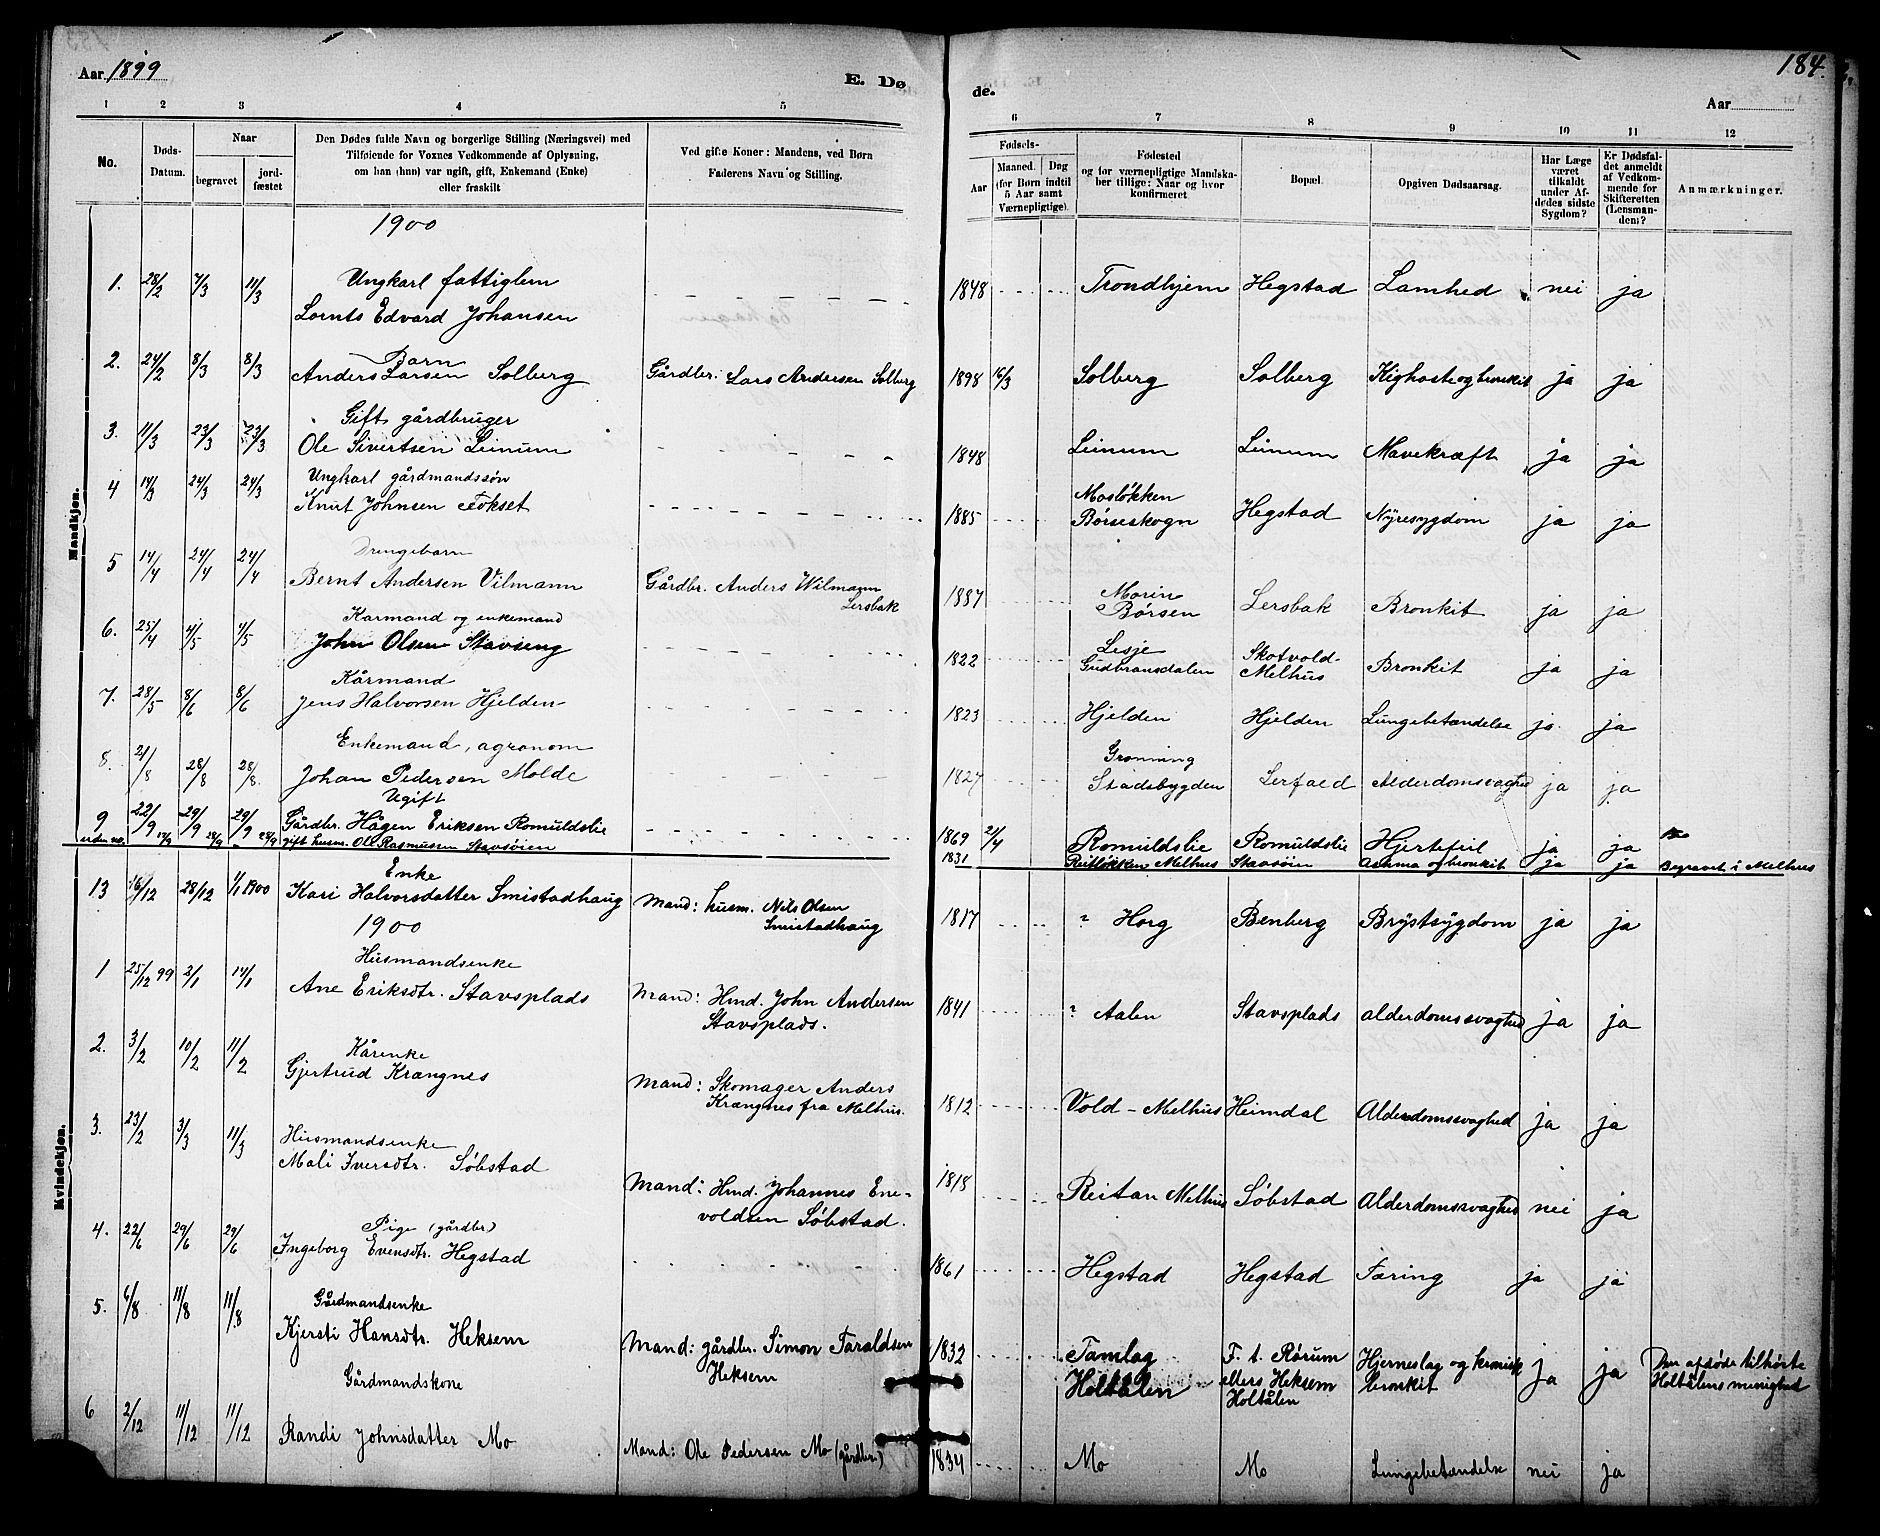 Aar. 1899
E. Dø
de.
184.
Aar
1 2 3 4 5 6 7 8 9 10 11 12
No.
Døds-Datum.
Naar
begravet
jord-fæstet
Den Dødes fulde Navn og borgerlige Stilling (Næringsvei) med
Tilføiende for Voxnes Vedkommende af Oplysning,
om han (hun) var ugift, gift, Enkemand (Enke)
eller fraskilt
Ved gifte Koner: Mandens, ved Børn
Faderens Navn og Stilling.
Fødsels-
Aar
Maaned.
Dag
(for Børn indtil
5 Aar samt
Værnepligtige).
Fødested
og for værnepligtige Mandska-
ber tillige: Naar og hvor
konfirmeret.
Bopæl.
Opgiven Dødsaarsag.
Har Læge
været
tilkaldt
under Af-
dødes sidste
Sygdom?
Er Dødsfal-
det anmeldt
af Vedkom-
mende for
Skifteretten
(Lensman-
den)?
Anmærkninger.
Mandkjøn.
1900
Ungkarl fattiglem
1. 28/2 7/3 11/3 Lornts Edvard Johansen 1848 Trondhjem Hegstad Lamhed nei ja
Barn
2. 24/2 8/3 8/3 Anders Larsen Solberg Gårdbr. Lars Andersen Solberg 1898 16/3 Solberg Solberg Kighoste og bronkit ja ja
Gift gårdbruger
3. 11/3 23/3 23/3 Ole Sivertsen Leinum 1848 Leinum Leinum Mavekræft ja ja
Ungkarl gårdmandssøn
4 14/3 24/3 24/3 Knut Johnsen Fokset 1885 Mosløkken Børseskogn Hegstad Nyresygdom ja ja
Drengebarn
5 14/4 24/4 24/4 Bernt Andersen Vilmann Gårdbr. Anders Wilmann Lersbak 1887 Morin Børsen Lersbak Bronkit ja ja
Karmand og enkemand
6. 25/4 4/5 4/5 John Olsen Stavseng 1822 Lesje Gudbransdalen Skotvold-Melhus Bronkit ja ja
Kårmand
7. 28/5 8/6 8/6 Jens Halvorsen Hjelden 1823 Hjelden Hjelden Lungebetændelse ja ja
Enkemand, agronom
8. 21/8 28/8 28/8 Johan Pedersen Molde 1827 Grønning Stadsbygden Lerfald Alderdomssvaghed ja ja
Ugift
9 22/9 29/9 29/9 Gårdbr. Hågen Eriksen Romuldslie 1869 21/4 Romuldslie Romuldslie Hjertefeil ja ja
uden no. 17/9 28/9 28/9 gift husm. Ole Rasmussen Stavsøien 1831 Reitløkken Melhus Stavsøien Astma og bronkit ja ja Begravet i Melhus
Kvindekjøn.
Enke
13 16/12 28/12 1/1 1900 Kari Halvorsdatter Smistadhaug Mand: husm. Nils Olsen Smistadhaug 1817 ? Horg Benberg Brystsygdom ja ja
1900
Husmandsenke
1 25/12 99 2/1 14/1 Ane Eriksdtr. Stavsplads Mand: Hmd. John Andersen Stavsplads. 1841 ? Aalen Stavsplads alderdomssvaghed ja ja
Kårenke
2. 3/2 10/2 11/2 Gjertrud Krængnes Mand: Skomager Anders Krængnes fra Melhus. 1812 Vold - Melhus Heimdal Alderdomssvaghed ja ja
Husmandsenke
3. 23/2 3/3 11/3 Mali Iversdtr. Søbstad Mand: Hmd. Johannes Ene-voldsen Søbstad. 1818 Reitan Melhus Søbstad Alderdomssvaghed nei ja
Pige (gårdbr)
4. 22/6 29/6 29/6 Ingeborg Evensdtr. Hegstad 1861 Hegstad Hegstad Tæring ja ja
Gårdmandsenke
5. 6/8 11/8 11/8 Kjersti Hansdtr. Heksem Mand: gårdbr. Simon Taraldsen Heksem 1832 Tamlag Holtålen F. t. Rørum ellers Heksem Holtålen Hjerneslag og kronisk bronkit ja ja Den afdøde tilhørte Holtålens menighed
Gårdmandskone
6 2/12 11/12 11/12 Randi Johnsdatter Mo Mand: Ole Pedersen Mo (gårdbr.) 1834 Mo Mo Lungebetændelse nei ja